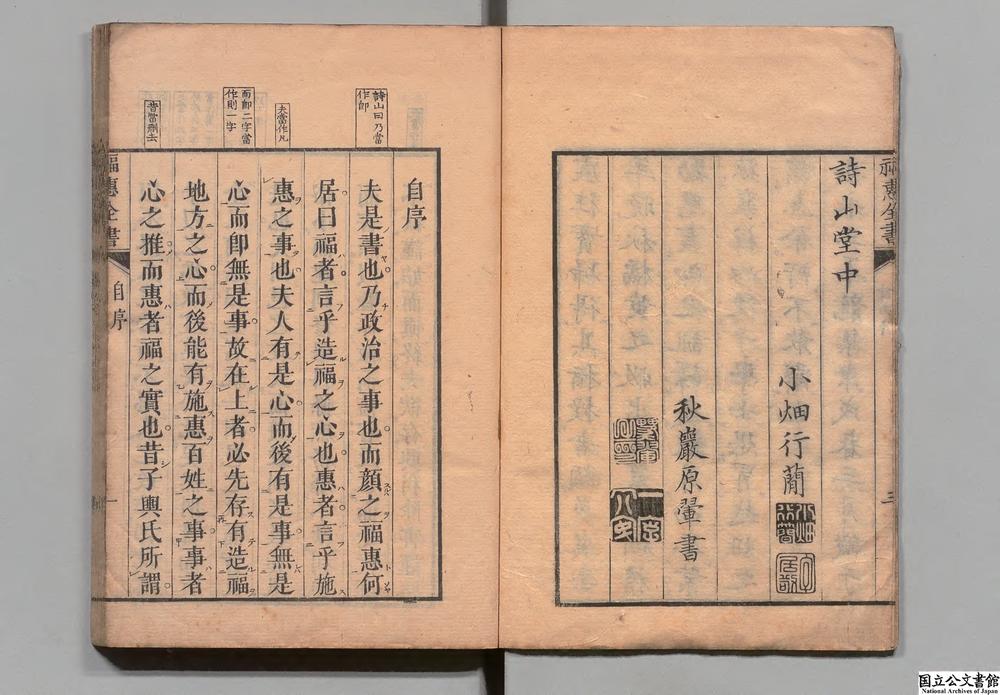 福惠全書
三
詩山堂中
小畑行蕳
秋巖原翬書
詩山曰乃當
作即
夫當作凡
而卽二字當
作則一字
昔當刪去
自序
夫是書也乃政治之事也而顏之福惠何
居曰福者言乎造福之心也惠者言乎施
惠之事也夫人有是心而後有是事無是
心而卽無是事故在上者必先存有造福
地方之心而後能有施惠百姓之事事者
心之推而惠者福之實也昔子輿氏所謂
福惠全書
自序
一
国立公文書館
National Archives of Japan